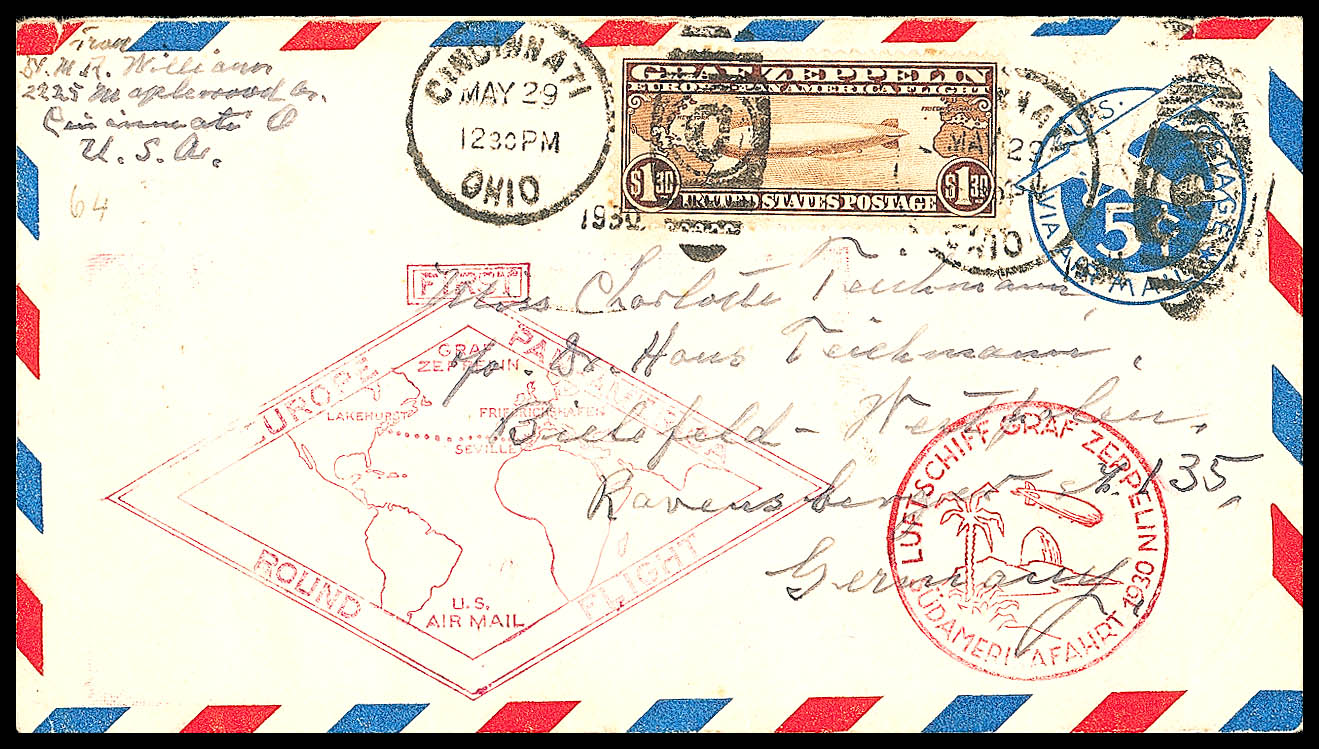 From
Dr. M. R. Williams
2225 Maplewood Av.
Cincinnati O
U. S. A.
64
CINCINNATI
MAY 29
12 30 PM
OHIO
1930
GRAF ZEPPELIN
EUROPE PAN AMERICA FLIGHT
$1.30 $1.30
UNITED STATES POSTAGE
MAY 29
OHIO
U.S. POSTAGE
5¢
VIA AIR MAIL
Miss Charlotte Teichmann,
c/o. Dr. Hans Teichmann,
Bielefeld - Westfalen,
Ravensberger st. 135,
Germany
FIRST
EUROPE PAN-AMERICA
ROUND FLIGHT
GRAF
ZEPPELIN
LAKEHURST
FRIEDRICHSHAFEN
SEVILLE
U.S.
AIR MAIL
LUFTSCHIFF GRAF ZEPPELIN
SÜDAMERI AFAHRT 1930